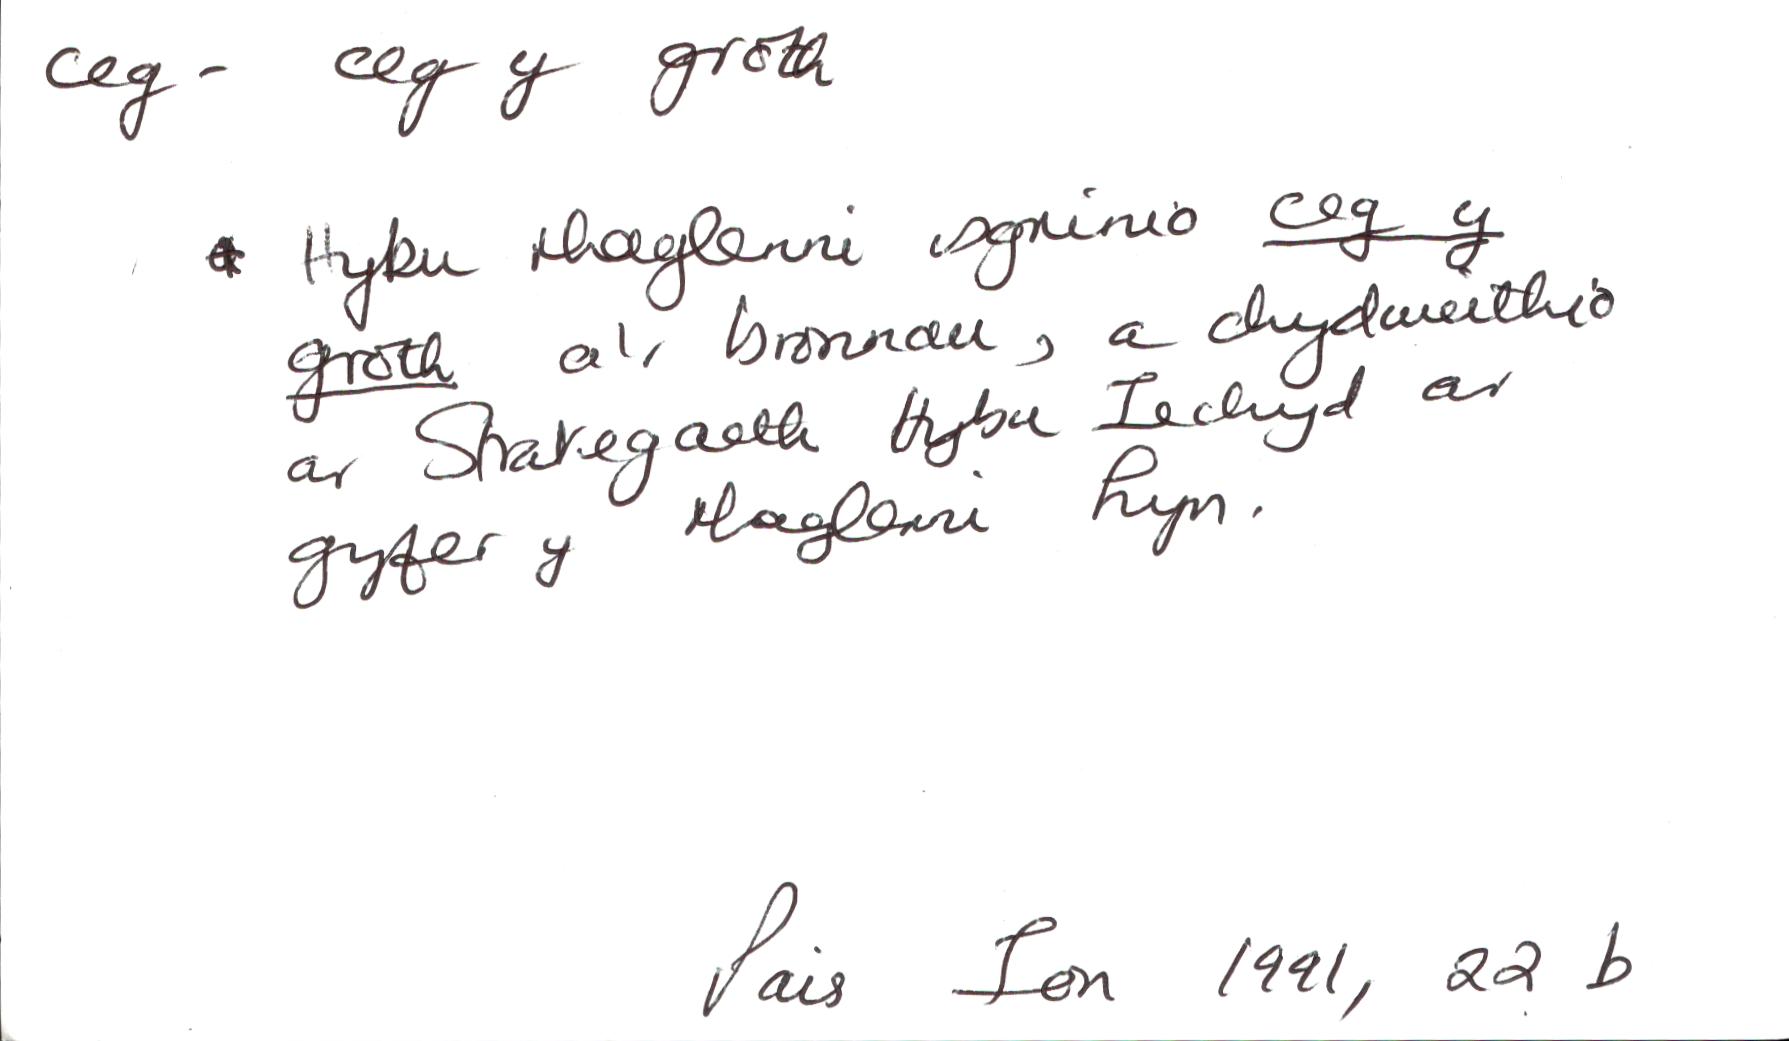 ceg - ceg y groth
* Hybu rhaglenni sgrinio ceg y
groth a'r bronnau, a chydweithio
ar Strategaeth Hybu Iechyd ar
gyfer y rhaglenni hyn.
Pais Ion 1991, 22 b